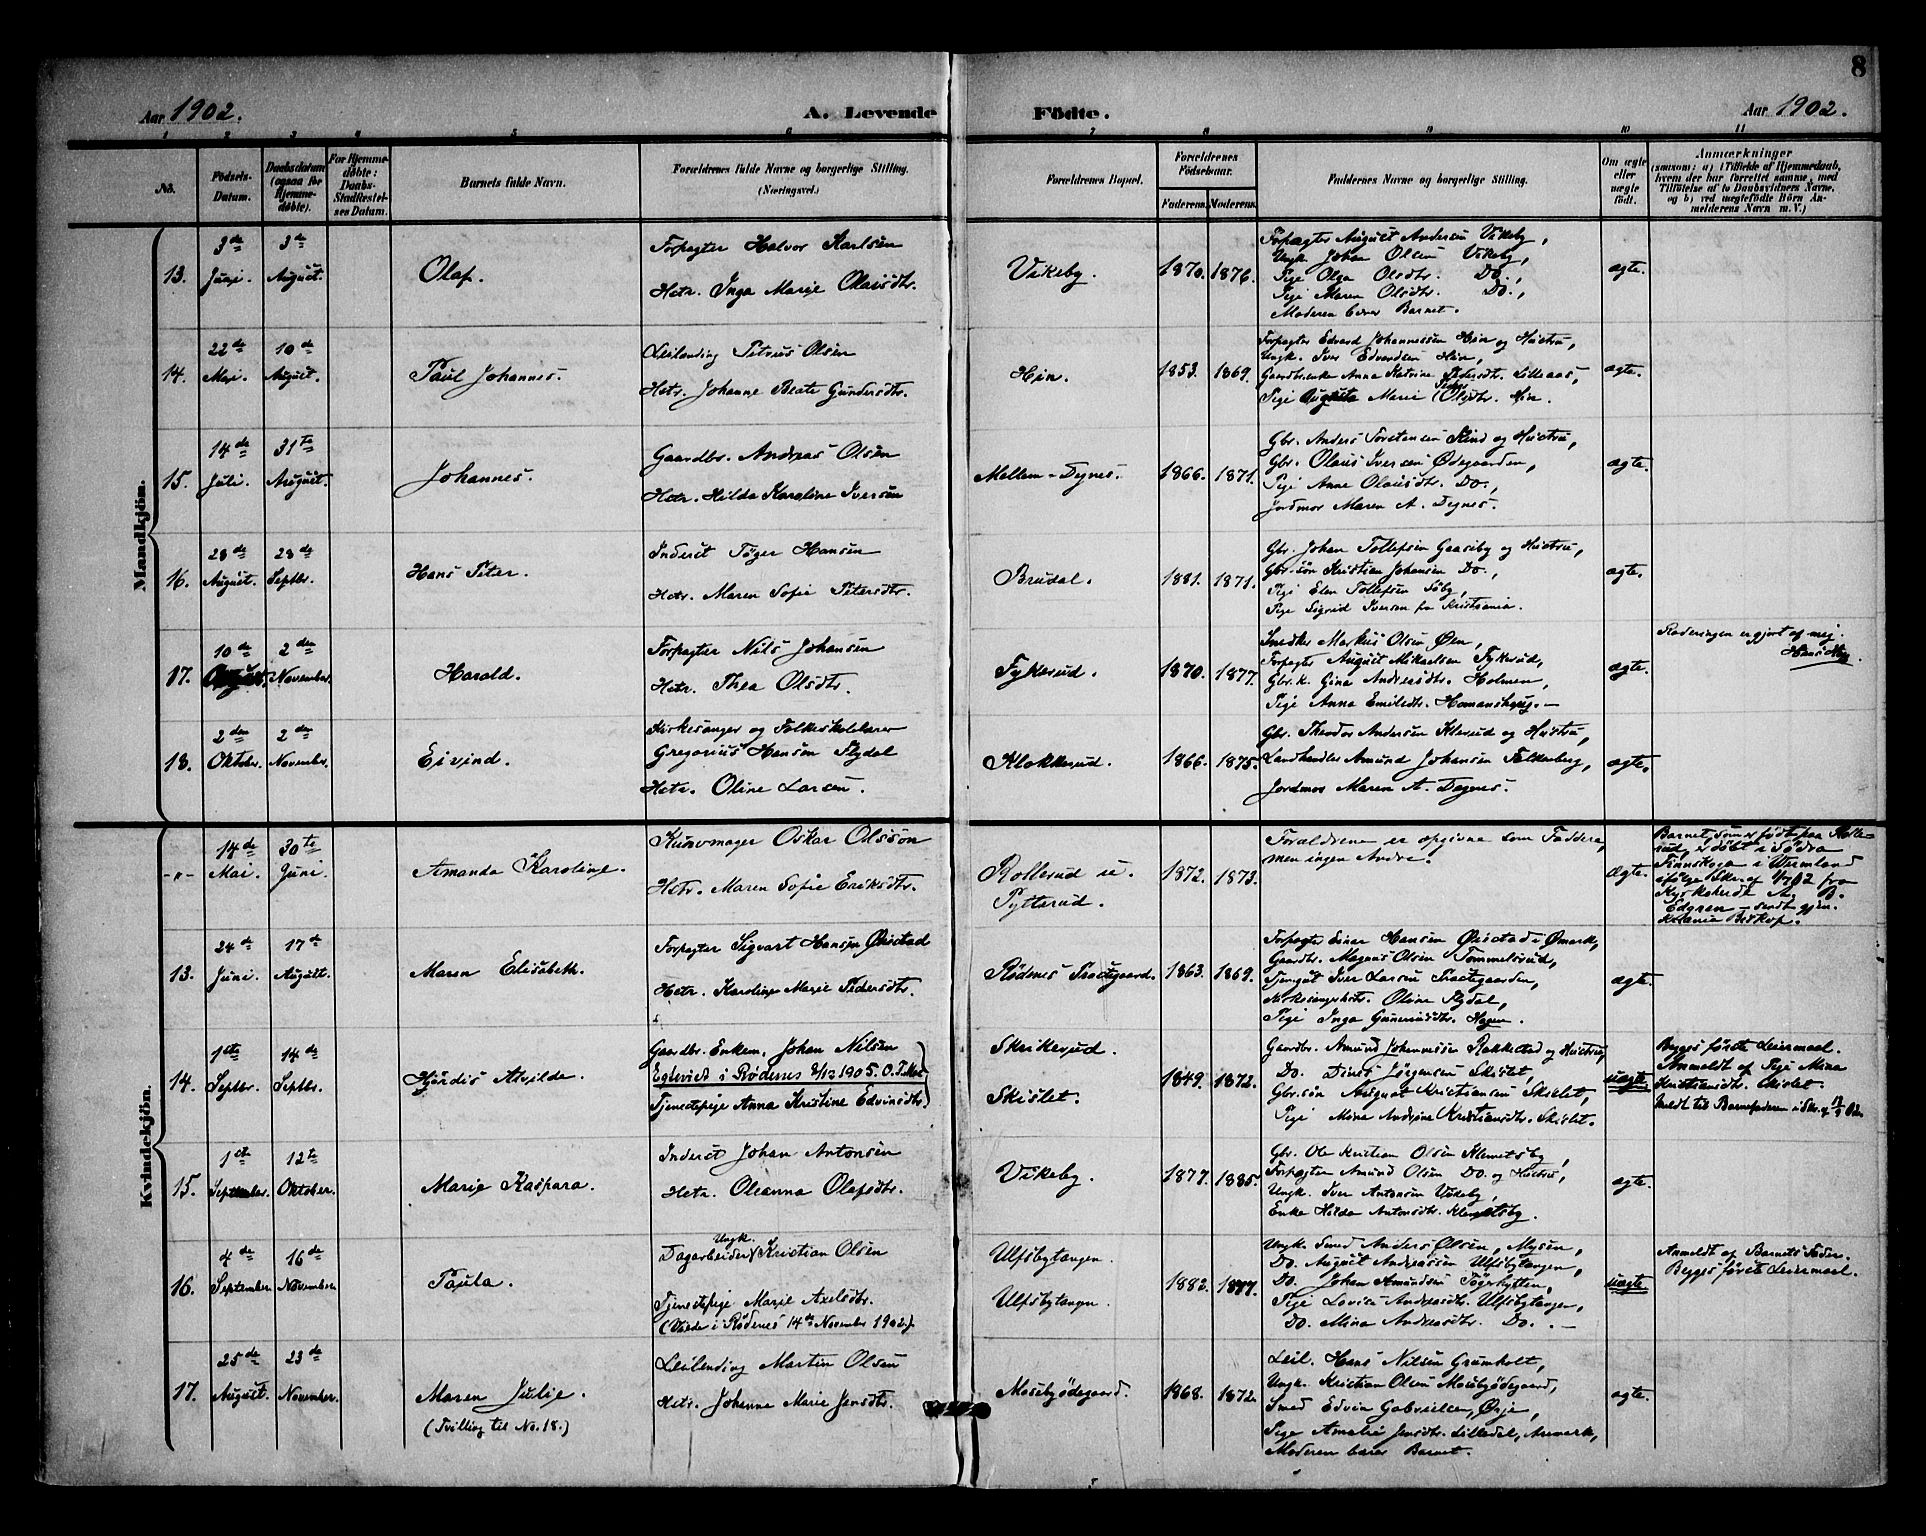 8
Aar 1902.
A. Levende Födte.
Aar 1902.
1 2 3 4 5 6 7 8 9 10 11
No.
Födsels-Datum.
Daabsdatum (ogsaa for Hjemmedöbte).
For Hjemmedöbte: Daabs-Stadfæstelses Datum.
Barnets fulde Navn.
Forældrenes fulde Navne og borgerlige Stilling. (Næringsvei.)
Forældrenes Bopæl.
Forældrenes Födselsaar.
Faderens. Moderens.
Faddernes Navne og borgerlige Stilling.
Om ægte eller uægte födt.
Anmærkninger
(saasom: a) i Tilfælde af Hjemmedaab,
hvem der har forrettet samme, med
Tilföielse af to Daabsvidners Navne,
og b) ved uægtefödte Börn An-
melderens Navn m. V.)
Mandkjön.
13.
3de Juni.
3de August.
Olaf.
Forpagter Halvor Karlsen
Hstr. Inga Marie Olausdtr.
Vikeby.
1870. 1876.
Forpagter August Andersen Vikeby,
Ungk. Johan Olsen Vikeby,
Pige Olga Olsdtr. Do.,
Pige Maren Olsdtr. Do.,
Moderen bærer Barnet.
ægte.
14.
22de Mai.
10de August.
Paul Johannes.
Leilending Petrus Olsen
Hstr. Johanne Beate Gundersdtr.
Hin.
1853. 1869.
Forpagter Edvard Johannessen Hin og Hustru,
Ungk. Iver Edvardsen Hin,
Gaardbr.enke Anna Katrine Pedersdtr. Lilleaas,
Pige Augusta Marie Olsdtr. Hin.
ægte.
15.
14de Juli.
31te August.
Johannes.
Gaardbr. Andreas Olsen
Hstr. Hilda Karoline Iversen
Mellem-Degnes.
1866. 1871.
Gbr. Anders Torstensen Slind og Hustru,
Gbr. Olaus Iversen Ødegaarden,
Pige Anne Olausdtr. Do.,
Jordmor Maren A. Degnes.
ægte.
16.
28de August.
28de Septbr.
Hans Peter.
Inderst Töger Hansen
Hstr. Maren Sofie Petersdtr.
Brudal.
1881. 1871.
Gbr. Johan Tollefsen Gaaseby og Hustru,
Gbr.sön Kristian Johansen Do.,
Pige Elen Tollefsen Söby,
Pige Sigrid Iversen fra Kristiania.
ægte.
17.
10de August.
2den November.
Harald.
Forpagter Nils Johansen
Hstr. Thea Olsdtr.
Fykerud.
1870. 1877.
Snedker Markus Olsen Øen,
Forpagter August Mikaelsen Fykerud,
Gbr.k. Gina Andreasdtr. Holmen,
Pige Anna Emilsdtr. Homanshaug.-
ægte.
Raderingen er gjort af mig.
Hans
18.
2den Oktober.
2den November.
Eivind.
Kirkesanger og Folkeskolelærer
Gregorius Hansen Flydal
Hstr. Oline Larsen.
Klokkerud.
1866. 1875.
Gbr. Theodor Andersen Klerud og Hustru,
Landhandler Amund Johansen Falkenberg,
Jordmor Maren A. Degnes.
ægte.
Kvindekjön.
-"-
14de Mai.
30te Juni.
Amanda Karoline.
Kurvmager Oskar Olsson
Hstr. Maren Sofie Eriksdtr.
Rollerud u.
Pytterud.
1872. 1873.
Forældrene er opgivne som Faddere,
men ingen Andre.
Ægte.
Barnet, som er födt paa Rolle-
rud, er döbt i Södra
Finnskoga i Wermland
ifölge Skr. af 4/7 02 fra
Kyrkoherde Ax. B.
Edgren - sendt gjen.
Hdania Biskop.
13.
24de Juni.
17de August.
Maren Elisabeth.
Forpagter Sigvart Hansen Ørstad
Hstr. Karoline Marie Pedersdtr.
Rödnes Præstegaard.
1863. 1869.
Forpagter Einar Hansen Ørstad i Ømark,
Gaardbr. Magnus Olsen Tommelsrud,
Tjengut Iver Larsen Præstegaarden,
Kirkesangerhstr. Oline Flydal,
Pige Inga Gunerusdtr. Hagen.
ægte.
14.
1ste Septbr.
14de Septbr.
Hjördis Alvilde.
Gaardbr. Enkem. Johan Nilsen
Egteviet i Rödenes 8/12 1905. O. Fults
Tjenestepige Anna Kristine Edvinsdtr.
Skrikerud.
Skislet.
1849. 1872.
Gaardbr. Amund Johannessen Rakkestad og Hustru,
Do. Dines Jörgensen Skislet,
Gbr.sön August Kristiansen Skislet,
Pige Mina Andrine Kristiansdtr. Skislet.
uægte.
Begges förste Leiermaal.
Anmeldt af Pige Mina
Kristiansdtr. Skislet.
Meldt til Barnefaderen i Skr. af 17/9 02.
15.
1ste September.
12te Oktober.
Marie Kaspara.
Inderst Johan Antonsen
Hstr. Oleanna Olafsdtr.
Vikeby.
1877. 1885.
Gbr. Ole Kristian Olsen Klemetsby,
Forpagter Amund Olsen Do. og Hustru,
Ungk. Iver Antonsen Vikeby,
Enke Hilda Antonsdtr. Klemetsby.
ægte.
16.
4de September.
16de November.
Paula.
Ungk.
Dagarbeider Kristian Olsen
Tjenestepige Marie Axelsdtr.
(Viede i Rödenes 14de November 1902).
Ulfsbytangen
Ulfsbytangen.
1882. 1877.
Ungk. Smed Anders Olsen, Mysen,
Do. August Andreassen Ulfsbytangen,
Do. Johan Amundsen Tögerhytten,
Pige Lovise Andreasdtr. Ulfsbytangen,
Do. Mina Andreasdtr. Do. -
uægte.
Anmeldt af Barnets Fader.
Begges förste Leiermaal.
17.
25de August.
23de November.
Maren Julie.
(Tvilling til No. 18.)
Leilending Martin Olsen
Hstr. Johanne Marie Jensdtr.
Mosebyödegaard.
1868. 1872.
Leil. Hans Nilsen Grumholt,
Ungk. Kristian Olsen Mosebyödegaard,
Smed Edvin Gabrielsen, Ørje,
Pige Amalie Jensdtr. Lilledal, Aremark,
Moderen bærer Barnet.
ægte.